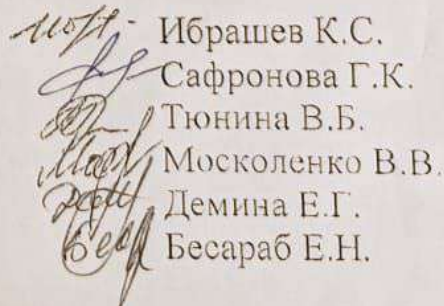 Ибрашев К.С.
Сафронова Г.К.
Тюнина В.Б.
Москоленко В.В.
Демина Е.Г.
Бесараб Е.Н.